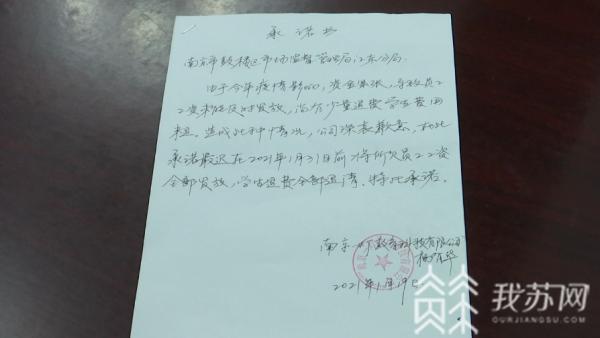 承诺书
南京市鼓楼区市场监督管理局江东分局
由于今年疫情影响，资金紧张，导致员工
工资未能及时发放，尚有少量退费学生费用
未退。造成此种情况，公司深表歉意，在此
承诺最迟在2021年1月31日前将所欠员工工资
全部发放，学生退费全部退清，特此承诺。
南京 教育科技有限公司
2021年1月19日
我苏网
OURJIANGSU.COM